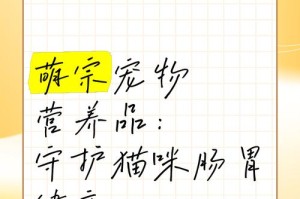 萌宗宠物
营养品:
守护猫咪肠胃